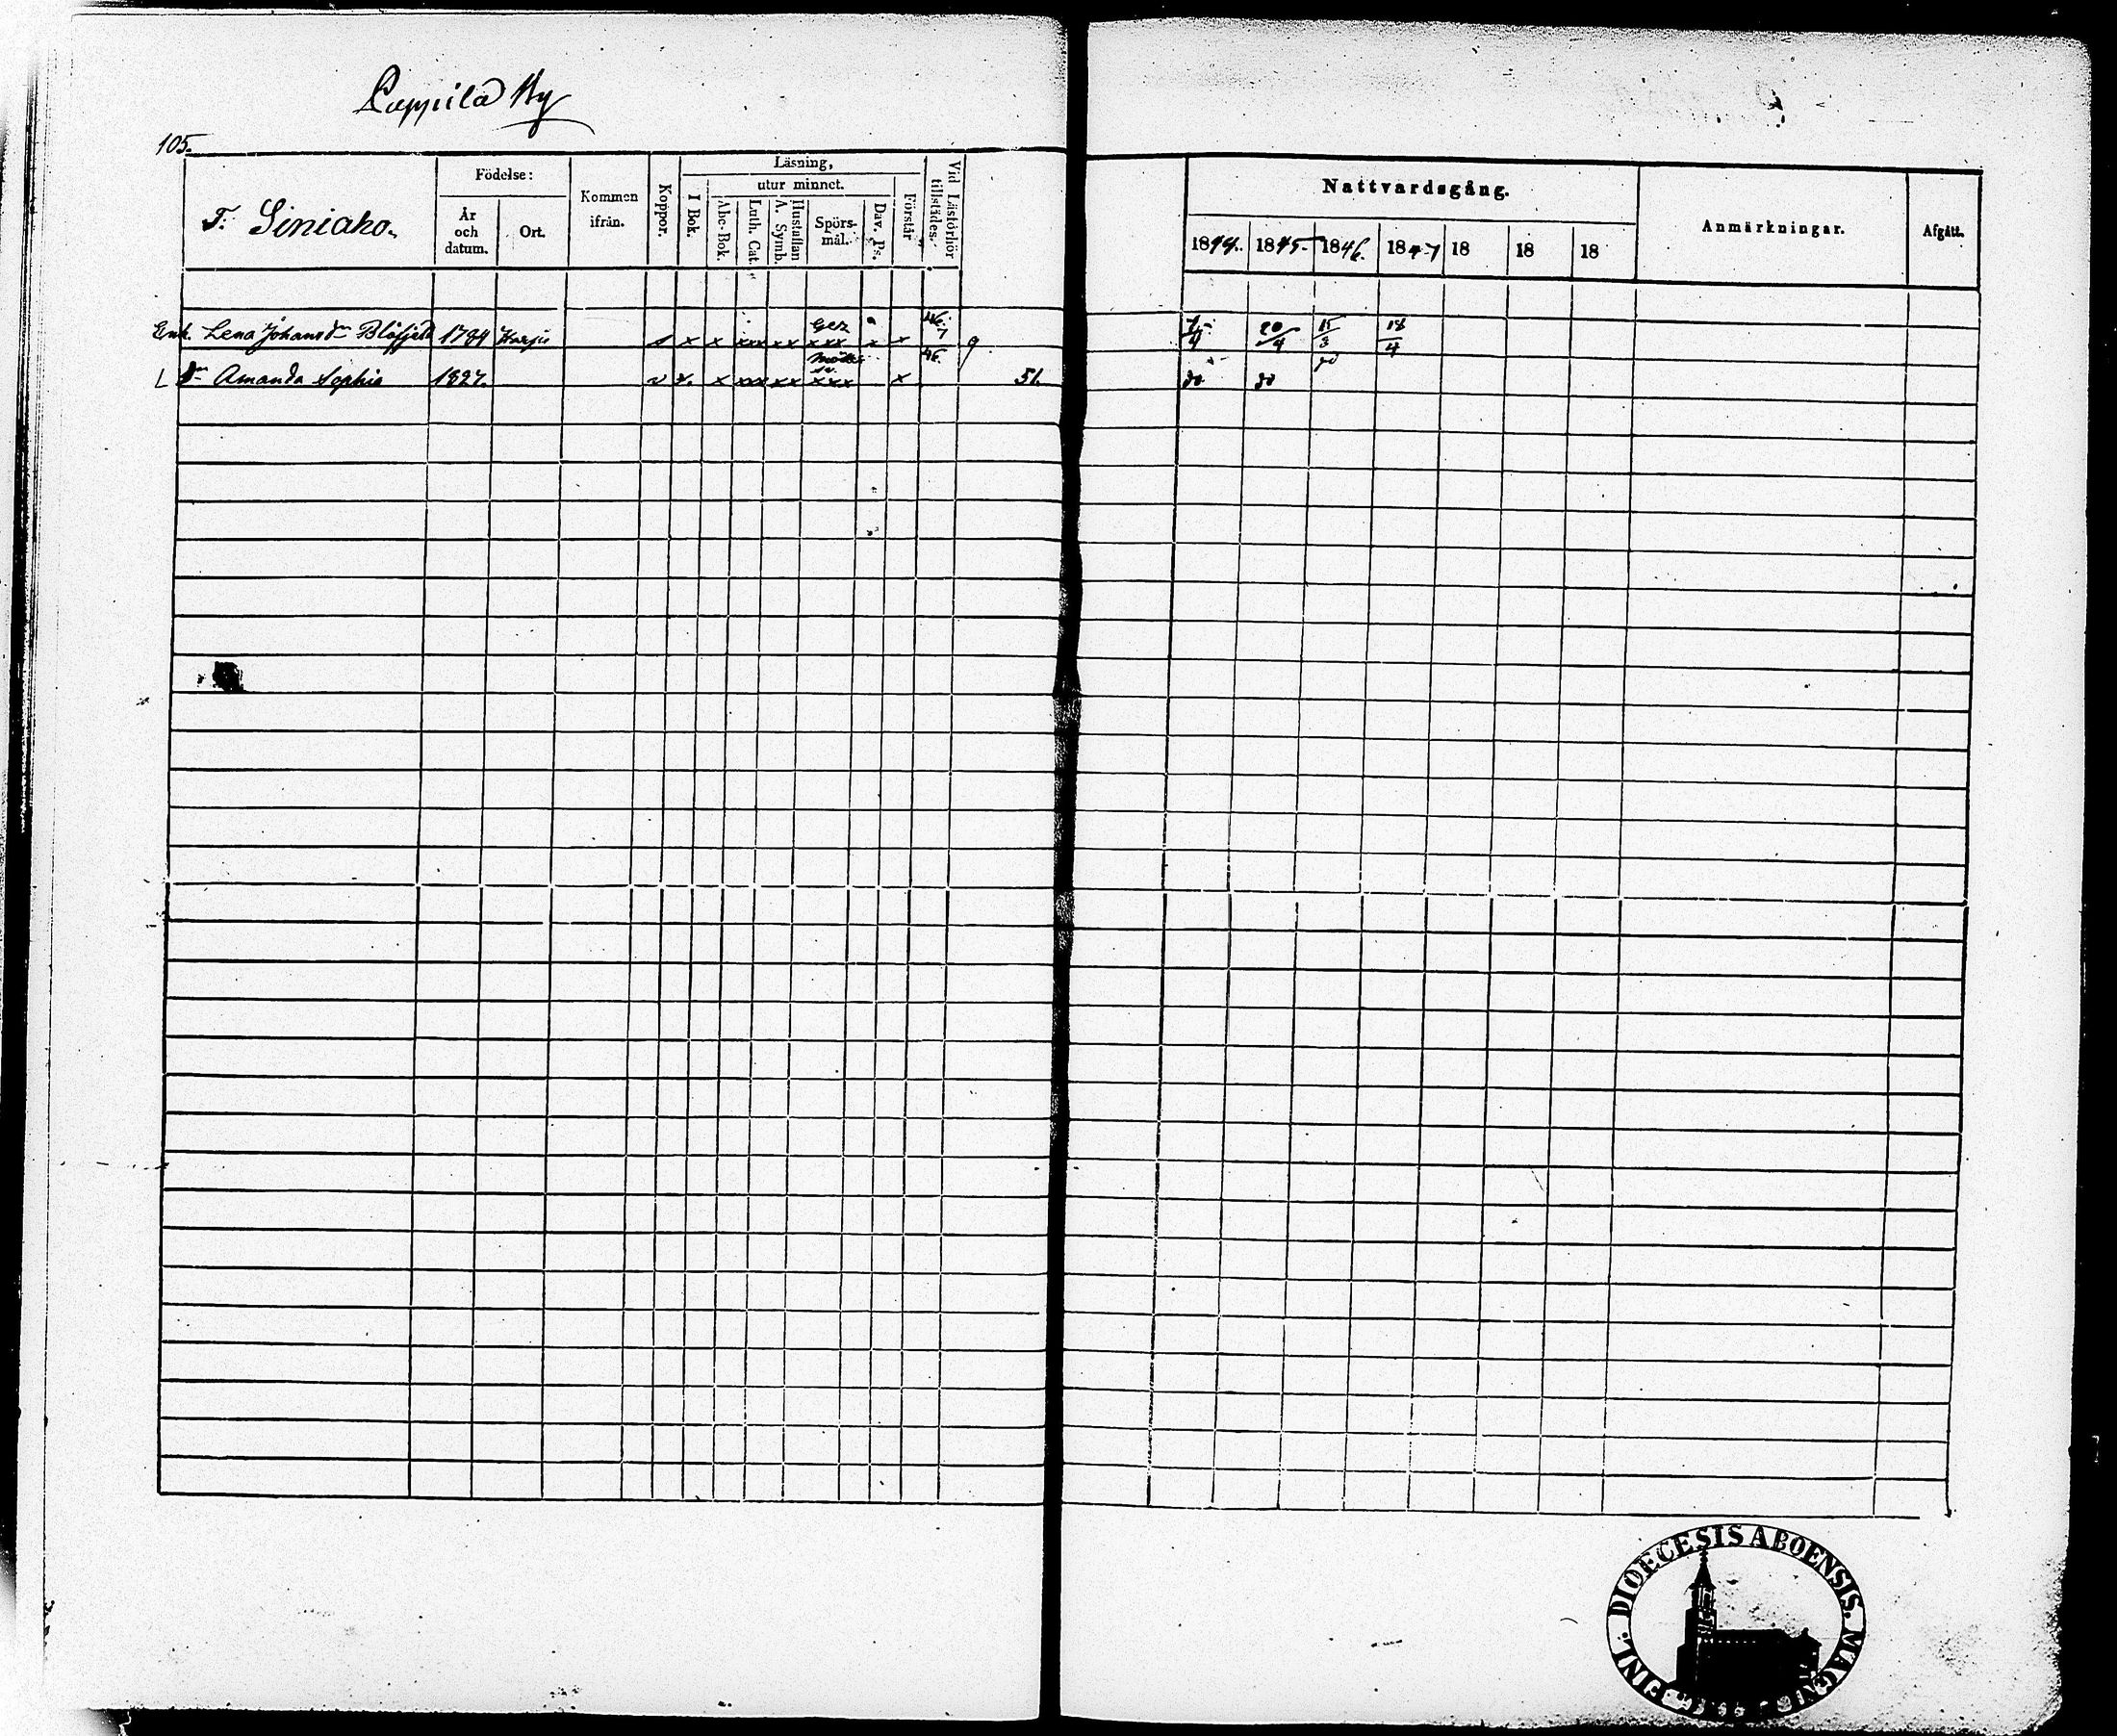 Lappila By
105.
T. Siniaho.
Födelse:
År och datum.
Ort.
Kommen ifrån.
Koppor.
Läsning,
I Bok.
utur minnet.
Abc-Bok.
Luth. Cat.
A. Symb.
Hustaflan
Spörs-mål.
Dav. Ps.
Förstår
Vid Läsförhör tillstädes.
Nattvardsgång.
1844. 1845. 1846. 1847 18 18 18
Anmärkningar.
Afgått.
Enk. Lena Johansdr Blåfjeld 1784 Karjis x x xxx xx xxx x x 46 7 9 7/4 20/4 15/3 18/4
L dr Amanda Sophia 1827. x. x xxx xx xxx x 46. 51. do do do
FINL. DIOECESIS ABOENSIS. MAGN.